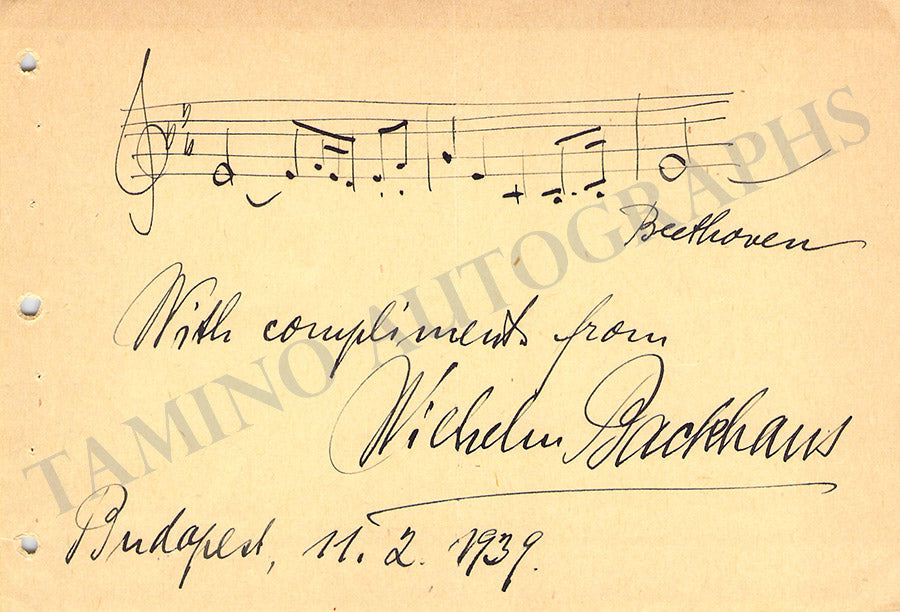 Beethoven
With compliments from
Wilhelm Backhaus
Budapest, 11. 2. 1939.
TAMINO AUTOGRAPHS